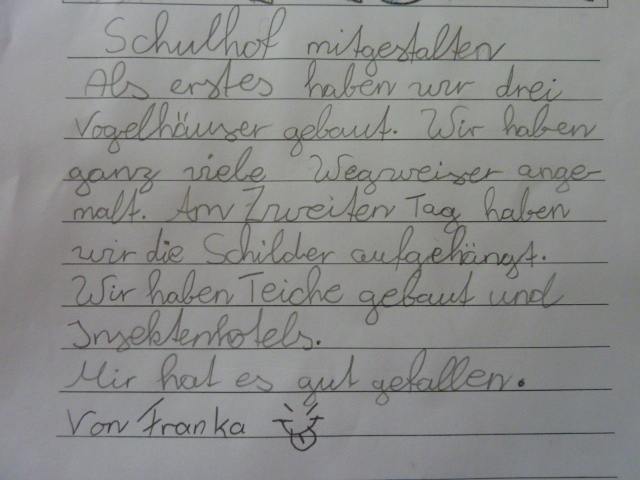 Schulhof mitgestalten
Als erstes haben wir drei
Vogelhäuser gebaut. Wir haben
ganz viele Wegweiser ange-
malt. Am Zweiten Tag haben
wir die Schilder aufgehängt.
Wir haben Teiche gebaut und
Insektenhotels.
Mir hat es gut gefallen.
Von Franka